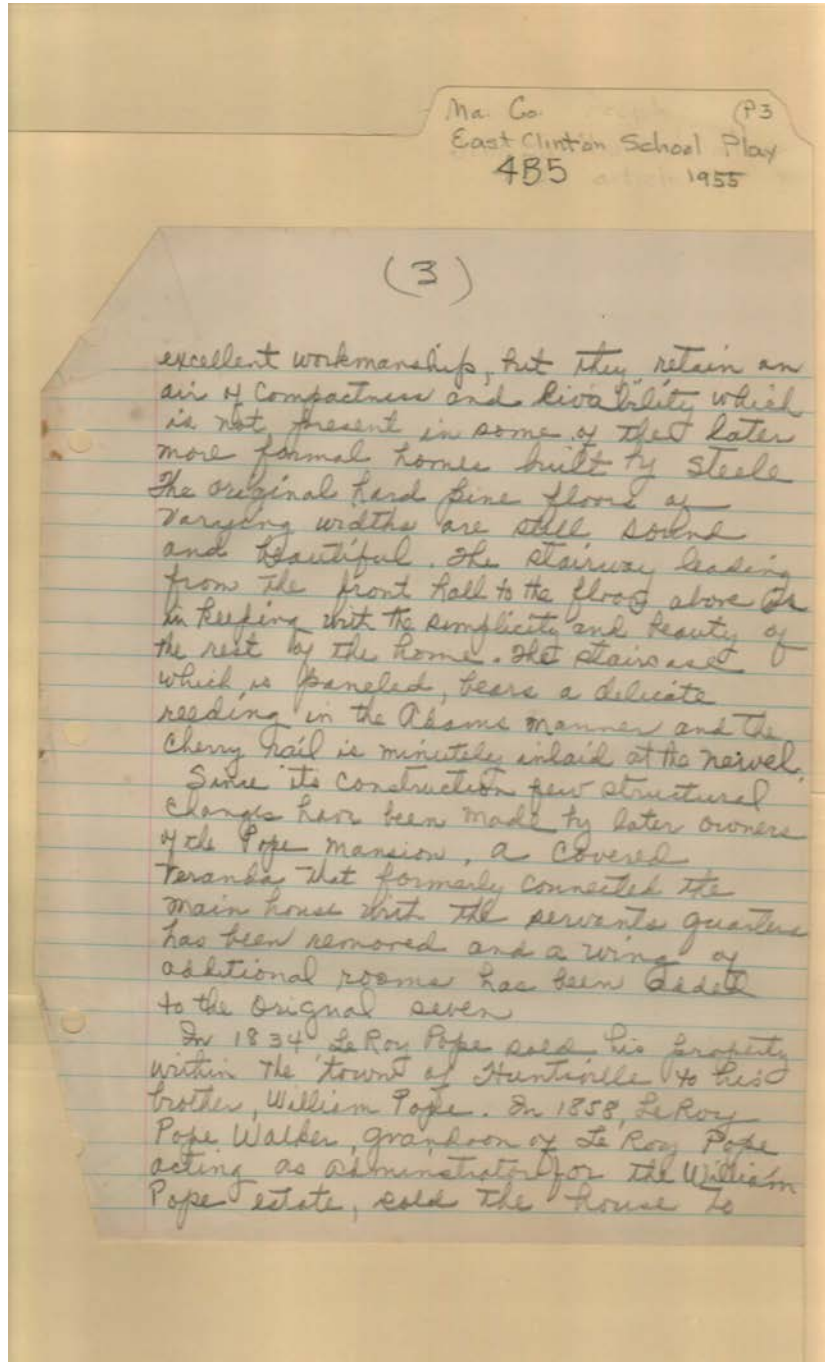 Ma. Co. (P3
East Clinton School Play
4B5 1955
(3)
excellent workmanship, but they retain an
air of compactness and "livability" which
is not present in some of the later
more formal homes built by Steele
The original hard pine floors of
varying widths are still sound
and beautiful. The stairway leading
from the front hall to the floor above is
in keeping with the simplicity and beauty of
the rest of the home. The staircase
which is paneled, bears a delicate
reeding in the Adams manner and the
Cherry rail is minutely inlaid at the newel.
Since its construction few structural
changes have been made by later owners
of the Pope mansion, a covered
Veranda that formerly connected the
main house with the servants quarters
has been removed and a wing of
additional rooms has been added
to the orignal seven
In 1834 LeRoy Pope sold his property
within the town of Huntsville to his
brother, William Pope. In 1858, LeRoy
Pope Walker, grandson of Le Roy Pope
acting as adminstrator for the William
Pope estate, sold the house to